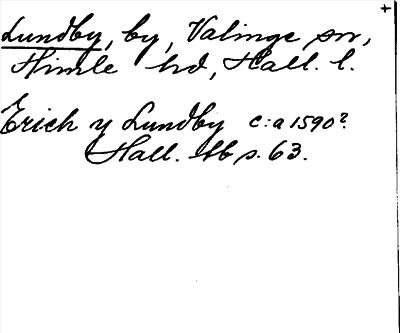 +
Lundby, by, Valinge sn,
Himle hd, Hall. l.
Erich y Lundby c:a 1590?
Hall. Hb s. 63.